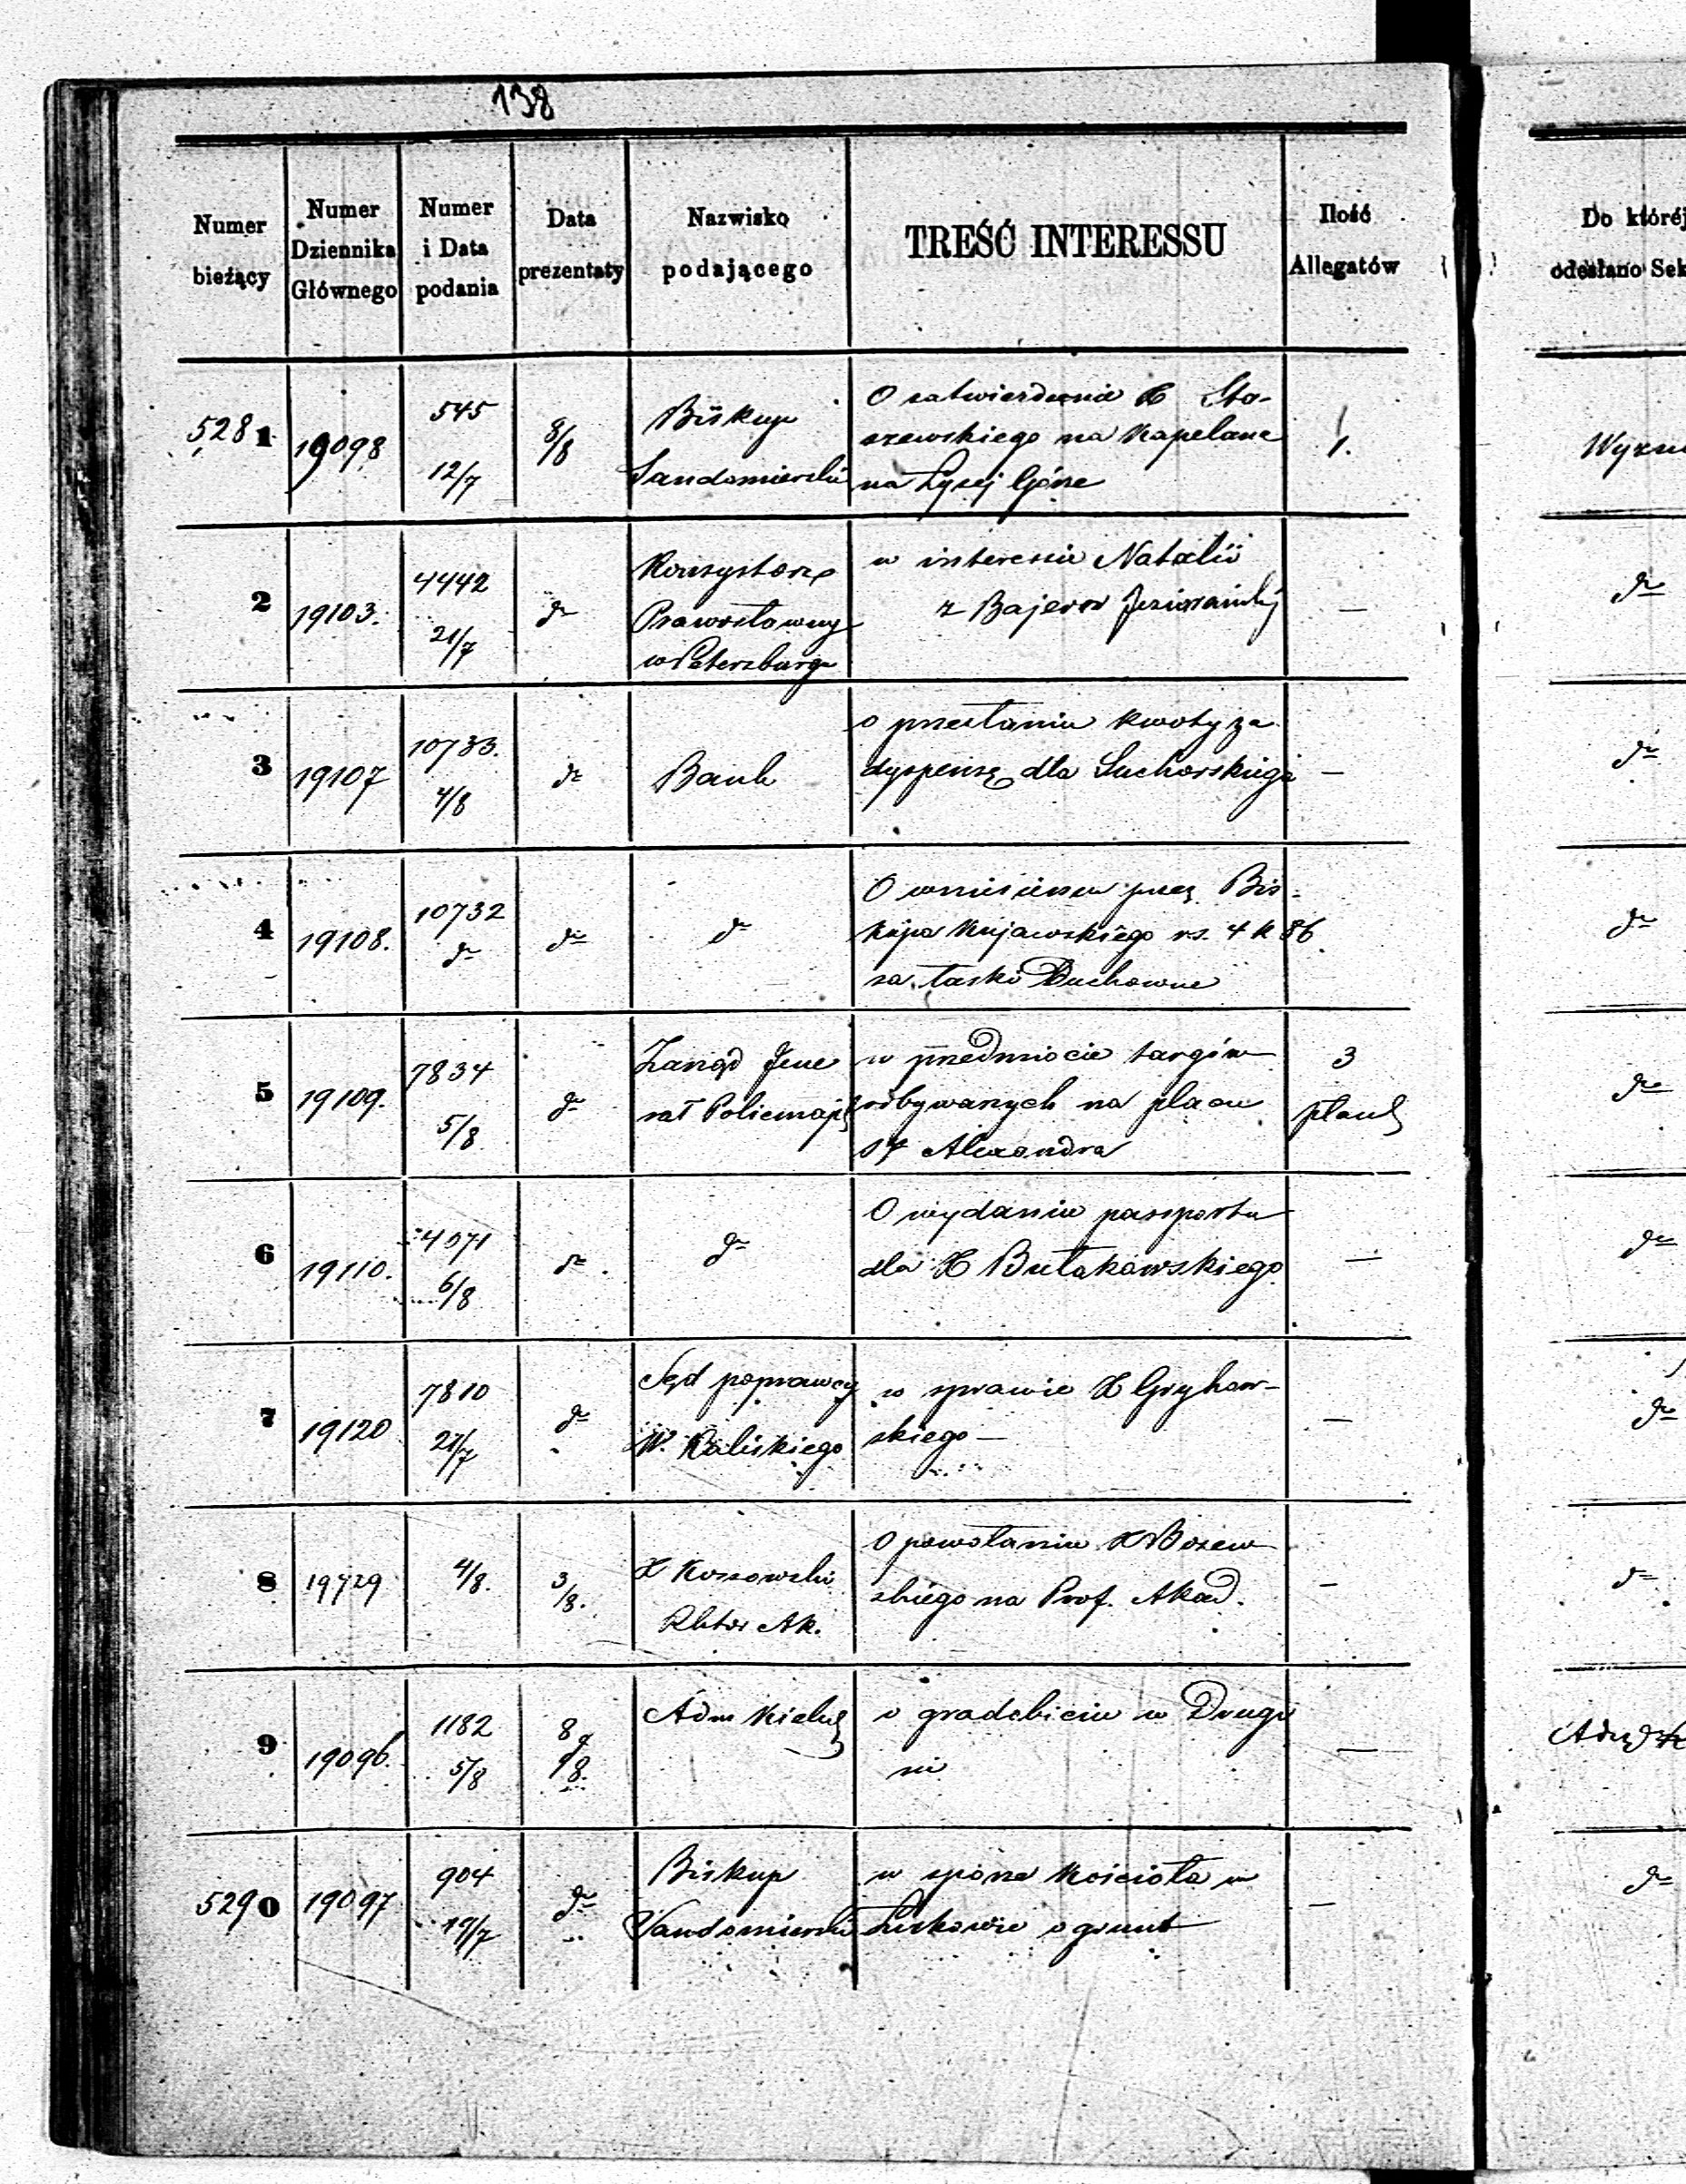 138
Numer bieżący
Numer Dziennika Głównego
Numer i Data podania
Data prezentaty
Nazwisko podającego
TREŚĆ INTERESSU
Ilość Allegatów
Do któréj
odesłano Sek
5281 19098 545 12/7 8/8
Biskup
Sandomierski
O zatwierdzenie X Sta-
szewskiego na Kapelana
na Łysej Górze
1.
2 19103. 4442 21/7 do
Konsystorz
Prawosławny
w Petersburgu
w interesie Natalii
z Bajerów
—
do
3 19107 10733. 4/8 do
Bank
o przesłaniu kwoty za
dyspensę dla Suchorskiego
—
do
4 19108. 10732 do do
do
O wniesieniu przez Bis-
kupa Kujawskiego rs. 4 k 86
za łaski Duchowne
do
5 19109. 7834 5/8 do
Zarząd Jene
rał Policmajs
w przedmiocie targów
odbywanych na placu
Sgo Alexandra
3
plany
do
6 19110. 4571 6/8 do
do
O wydanie passportu
dla X Bułakowskiego
—
do
7 19120 7810 21/7 do
Sąd poprawczy
W. Kaliskiego
w sprawie X Grykow-
skiego —
—
do
8 19729 4/8. 3/8.
X Kossowski
Rktor Ak.
O powołaniu X
skiego na Prof. Akad.
—
do
9 19096. 1182 5/8 8/8
Adm Kielc
o gradobiciu w Drugi
ni
—
5290 19097 904 19/7 do
Biskup
Sandomierski
w sporze Kościoła w
o grunt
—
do